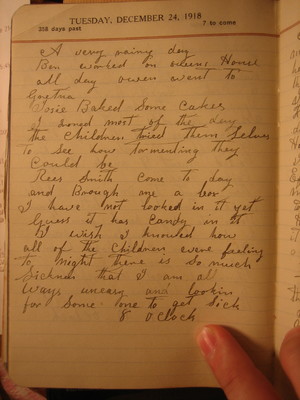 TUESDAY, DECEMBER 24, 1918
358 days past 7 to come
A very rainy day
Ben worked on House
all day owen went to
Gretna
Josie Baked Some Cakes
I soned most of the day
the children tried them selves
to See how tormenting they
Could be
Rees Smith Come to day
and Brough me a box
I have not looked in it yet
Guess it has Candy in it
I wish I knowed how
all of the Children were feeling
to night there is So much
Sickness that I am all
ways uneasy and lookin
for Some one to get Sick
8 O Clock